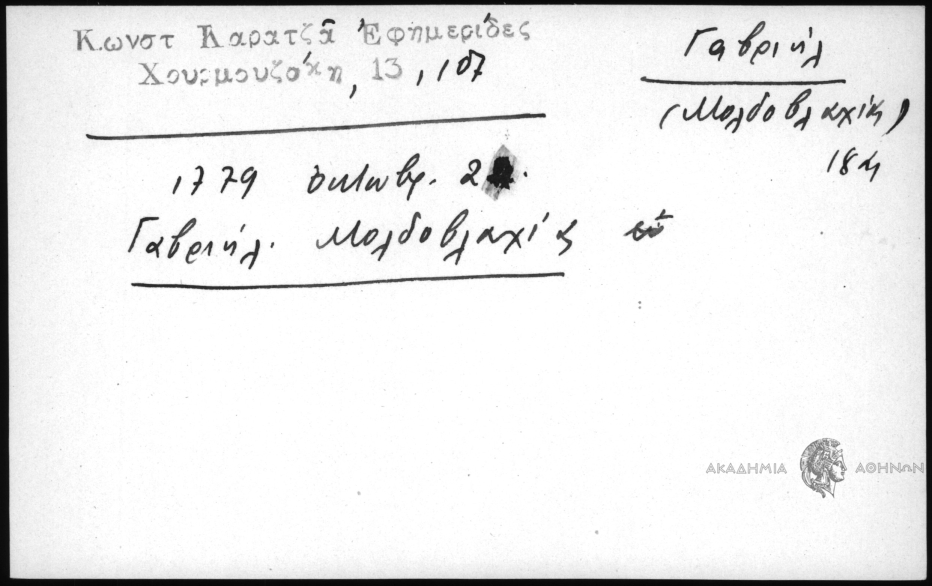 Κωνστ Καρατζᾶ Ἐφημερίδες
Χουρμουζάκη, 13, 107
Γαβριήλ
(Μολδοβλαχίας)
18ος
1779 ὀκτωβρ. 2
Γαβριήλ. Μολδοβλαχίας
ΑΚΑΔΗΜΙΑ ΑΘΗΝΩΝ